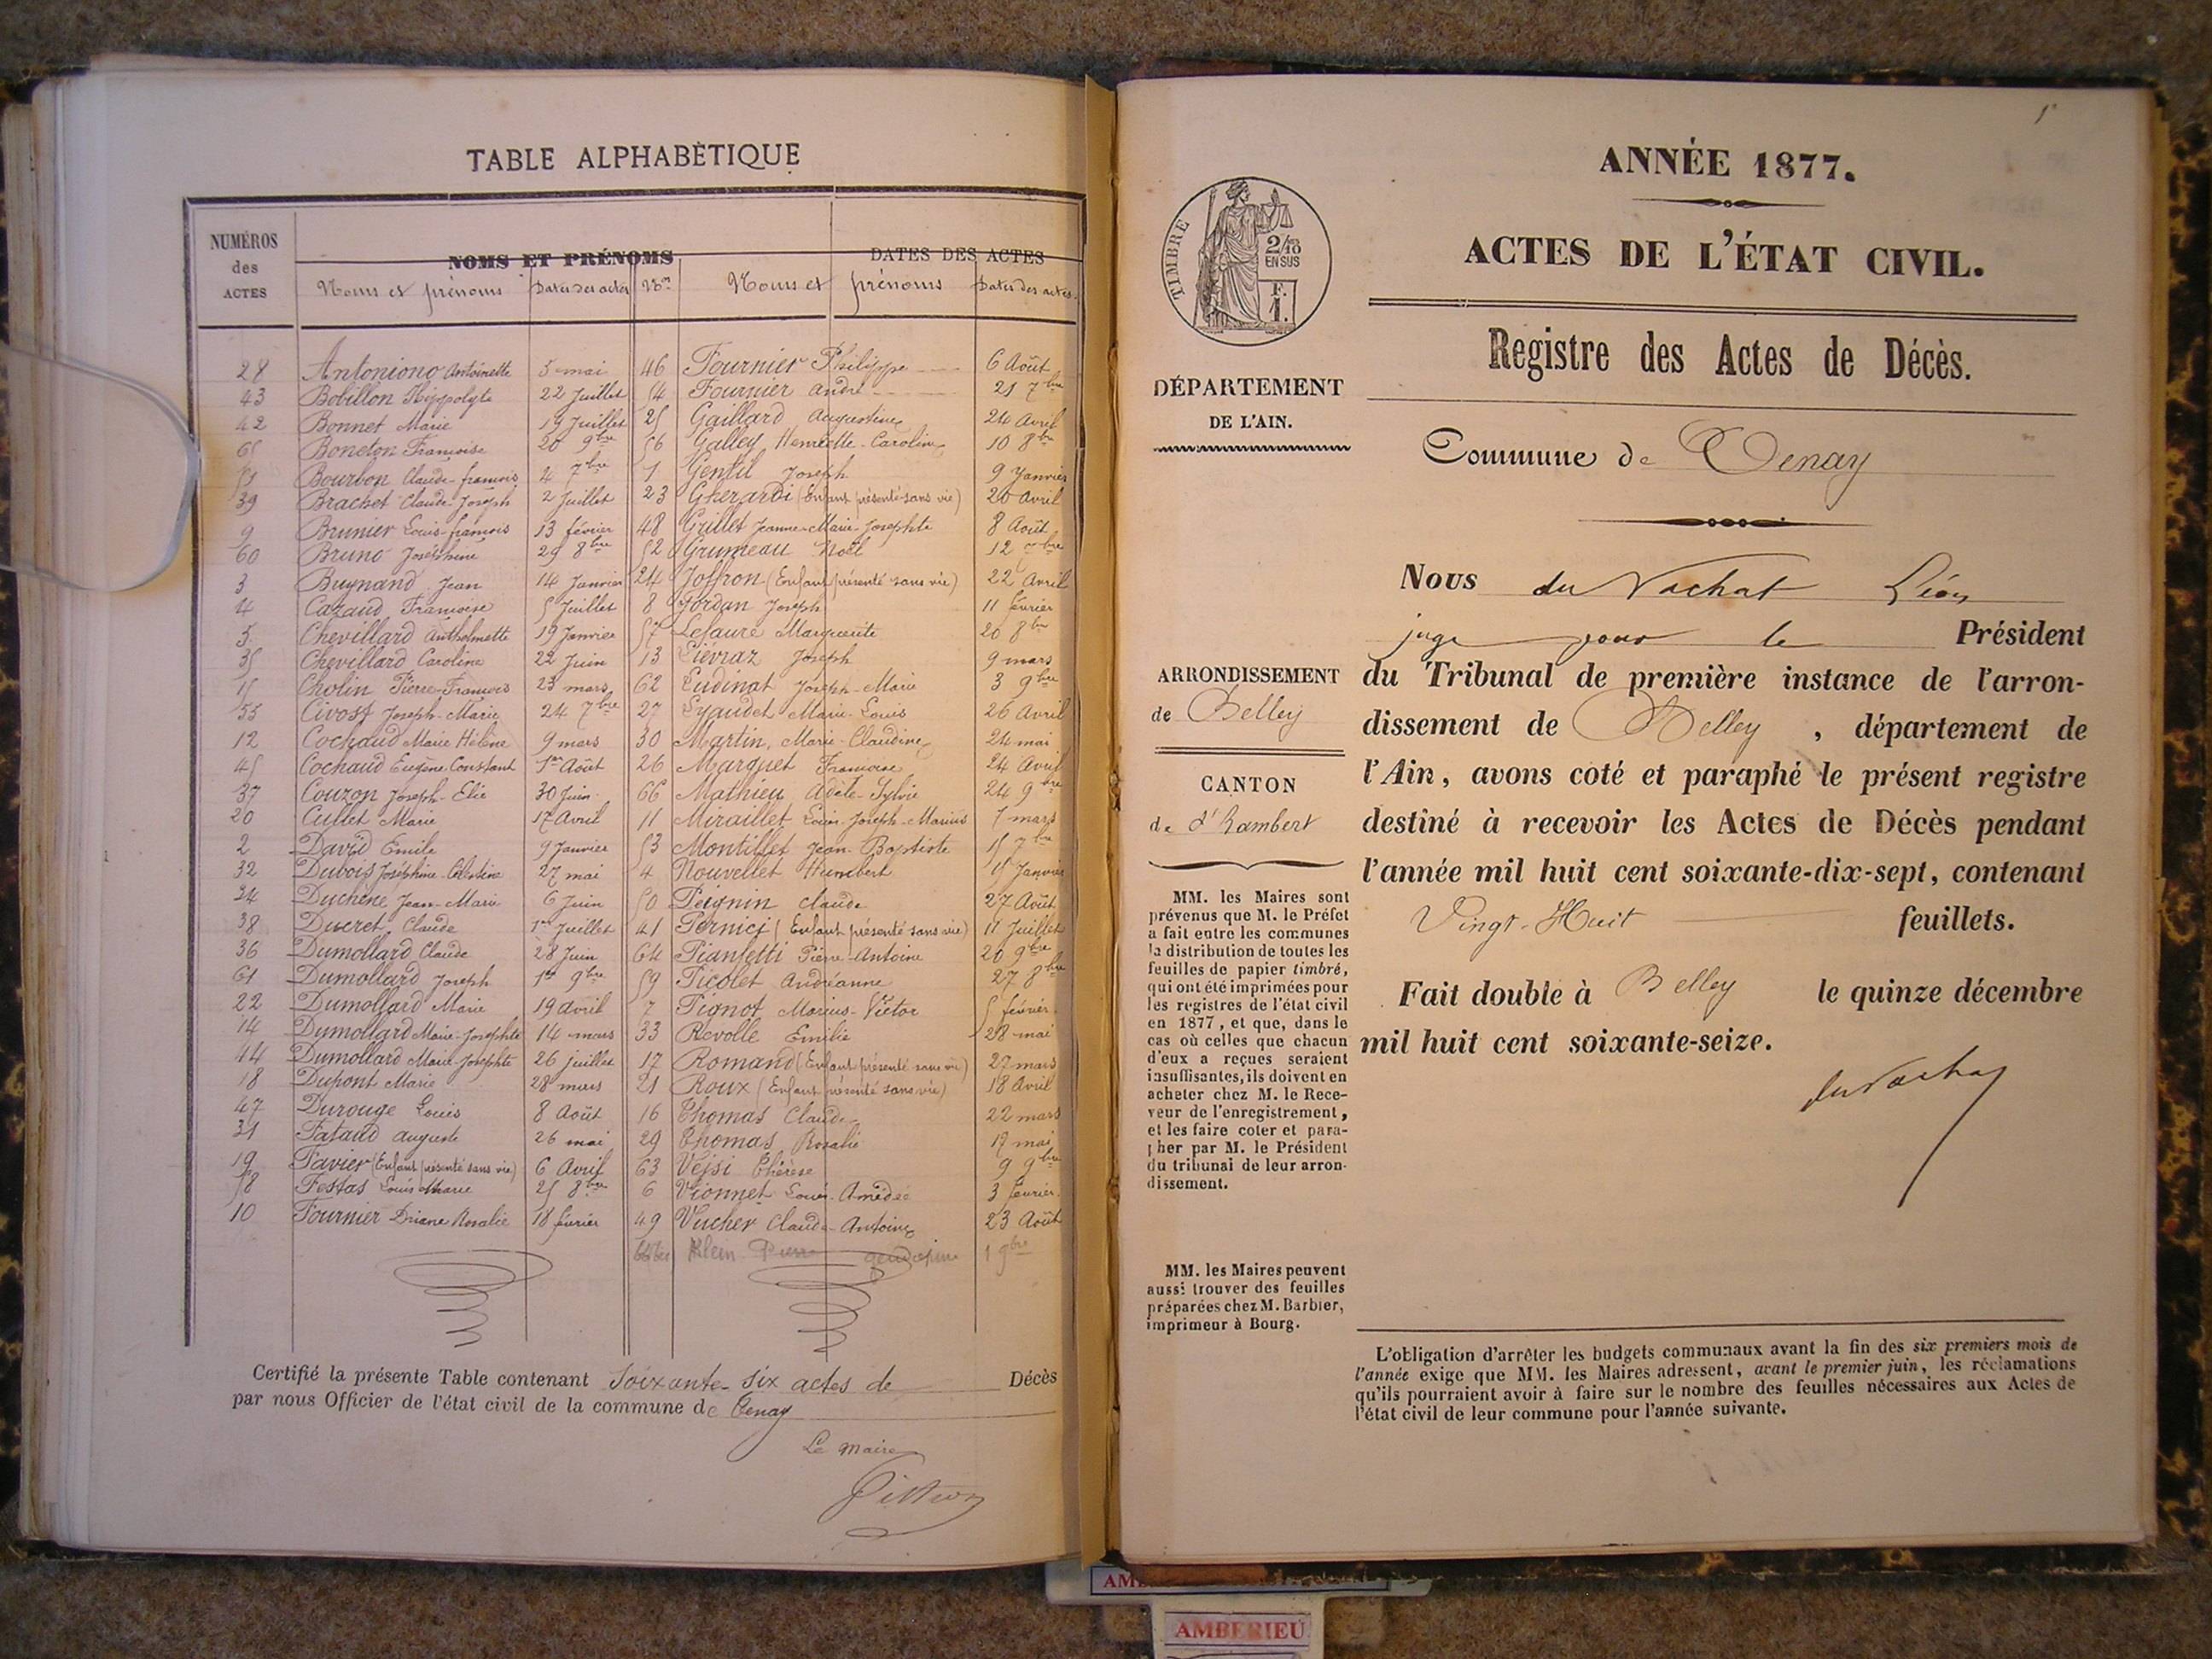 TABLE ALPHABÈTIQUE
NUMÉROS
des
ACTES
NOMS ET PRÉNOMS
DATES DES ACTES
Noms et prénoms Dates des actes Nos Noms et prénoms Dates des actes
28 Antoniono Antoinette 5 mai 46 Fournier Philippe 6 Août
43 Bobillon Hyppolyte 22 Juillet 54 Fournier André 21 7bre
42 Bonnet Marie 19 Juillet 25 Gaillard Augustine 24 Avril
65 Boneton Françoise 20 9bre 56 Galley Henriette-Caroline 10 8bre
51 Bourbon Claude-françois 4 7bre 1 Gentil Joseph 9 Janvier
39 Brachet Claude-Joseph 2 Juillet 23 Gherardi (Enfant présenté sans vie) 20 Avril
9 Brunier Louis-françois 13 février 48 Grillet Jeanne-Marie-Josephte 8 Août
60 Bruno Joséphine 29 8bre 52 Grumeau Noël 12 7bre
3 Buynand Jean 14 Janvier 24 Joffron (Enfant présenté sans vie) 22 Avril
Cazaud Françoise 5 Juillet 8 Jordan Joseph 11 février
5 Chevillard Anthelmette 19 Janvier 57 Lefaure Marguerite 20 8bre
35 Chevillard Caroline 22 Juin 13 Liévraz Joseph 9 mars
15 Cholin Pierre-François 23 mars 62 Ludinat Joseph-Marie 3 9bre
55 Civost Joseph-Marie 24 7bre 27 Lyaudet Marie-Louis 26 Avril
12 Cochaud Marie Hélène 9 mars 30 Martin, Marie-Claudine 24 mai
45 Cochaud Eugène Constant 1er Août 26 Marquet Françoise 24 Avril
37 Couzon Joseph-Elie 30 Juin 66 Mathieu Adèle-Sylvie 24 9bre
20 Cullet Marie 17 Avril 11 Miraillet Louis-Joseph-Marius 7 mars
2 David Emile 9 Janvier 53 Montillet Jean-Baptiste 15 7bre
32 Dubois Joséphine 27 mai 4 Nouvellet Humbert 15 Janvier
34 Duchêne Jean-Marie 6 Juin 50 Peignin Claude 27 Août
38 Ducret Claude 1er Juillet 41 Pernici (Enfant présenté sans vie) 11 Juillet
36 Dumollard Claude 28 Juin 64 Pianfetti Pierre-Antoine 20 9bre
61 Dumollard Joseph 1er 9bre 59 Picolet Andréanne 27 8bre
22 Dumollard Marie 19 Avril 7 Pignot Marius-Victor 5 février
14 Dumollard Marie-Josephte 14 mars 33 Revolle Emilie 28 mai
44 Dumollard Marie-Josephte 26 juillet 17 Romand (Enfant présenté sans vie) 27 mars
18 Dupont Marie 28 mars 21 Roux (Enfant présenté sans vie) 18 Avril
47 Durouge Louis 8 Août 16 Thomas Claude 22 mars
31 Fataud Auguste 26 mai 29 Thomas Rosalie 17 mai
19 Favier (Enfant présenté sans vie) 6 Avril 63 Vejsi Thérèse 9 9bre
58 Festas Louis Marie 25 8bre 6 Vionnet Louis-Amédée 3 février
10 Fournier Driane Rosalie 18 février 49 Vucher Claude-Antoine 23 Août
Klein Pierre 1 9bre
Certifié la présente Table contenant Soixante-Six actes de Décès
par nous Officier de l'état civil de la commune de Tenay
Le maire
1er
ANNÉE 1877.
ACTES DE L'ÉTAT CIVIL.
TIMBRE
2/10
EN SUS
F.
1.
Registre des Actes de Décès.
DÉPARTEMENT
DE L'AIN.
Commune de Tenay
Nous du Vachat Léon
juge pour le Président
ARRONDISSEMENT
de Belley
CANTON
de St Rambert
du Tribunal de première instance de l'arron-
dissement de Belley, département de
l'Ain, avons coté et paraphé le présent registre
destiné à recevoir les Actes de Décès pendant
l'année mil huit cent soixante-dix-sept, contenant
Vingt-Huit feuillets.
Fait double à Belley le quinze décembre
mil huit cent soixante-seize.
du Vachat
MM. les Maires sont
prévenus que M. le Préfet
a fait entre les communes
la distribution de toutes les
feuilles de papier timbré,
qui ont été imprimées pour
les registres de l'état civil
en 1877, et que, dans le
cas où celles que chacun
d'eux a reçues seraient
insuffisantes, ils doivent en
acheter chez M. le Rece-
veur de l'enregistrement,
et les faire coter et para-
pher par M. le Président
du tribunal de leur arron-
dissement.
MM. les Maires peuvent
aussi trouver des feuilles
préparées chez M. Barbier,
imprimeur à Bourg.
L'obligation d'arrêter les budgets communaux avant la fin des six premiers mois de
l'année exige que MM. les Maires adressent, avant le premier juin, les réclamations
qu'ils pourraient avoir à faire sur le nombre des feuilles nécessaires aux Actes de
l'état civil de leur commune pour l'année suivante.
AMBERIEU